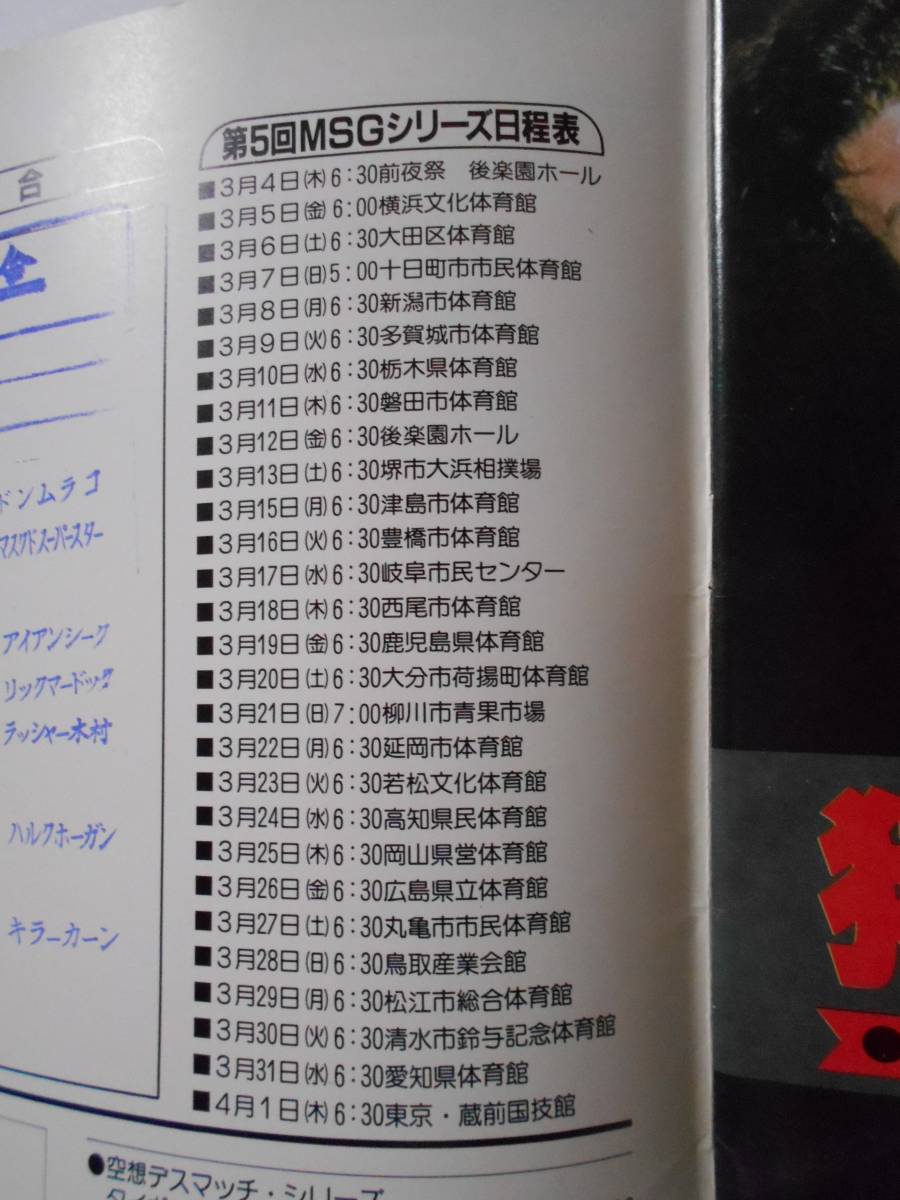 台
ドンムラコ
マスクドスーパースター
アイアンシーク
リックマードック
ラッシャー木村
ハルクホーガン
キラーカーン
第5回MSGシリーズ日程表
■3月4日(木)6:30前夜祭 後楽園ホール
■3月5日(金)6:00横浜文化体育館
■3月6日(土)6:30大田区体育館
■3月7日(日)5:00十日町市市民体育館
■3月8日(月)6:30新潟市体育館
■3月9日(火)6:30多賀城市体育館
■3月10日(水)6:30栃木県体育館
■3月11日(木)6:30磐田市体育館
■3月12日(金)6:30後楽園ホール
■3月13日(土)6:30堺市大浜相撲場
■3月15日(月)6:30津島市体育館
■3月16日(火)6:30豊橋市体育館
■3月17日(水)6:30岐阜市民センター
■3月18日(木)6:30西尾市体育館
■3月19日(金)6:30鹿児島県体育館
■3月20日(土)6:30大分市荷揚町体育館
■3月21日(日)7:00柳川市青果市場
■3月22日(月)6:30延岡市体育館
■3月23日(火)6:30若松文化体育館
■3月24日(水)6:30高知県民体育館
■3月25日(木)6:30岡山県営体育館
■3月26日(金)6:30広島県立体育館
■3月27日(土)6:30丸亀市市民体育館
■3月28日(日)6:30鳥取産業会館
■3月29日(月)6:30松江市総合体育館
■3月30日(火)6:30清水市鈴与記念体育館
■3月31日(水)6:30愛知県体育館
■4月1日(木)6:30東京・蔵前国技館
●空想デスマッチ・シリーズ